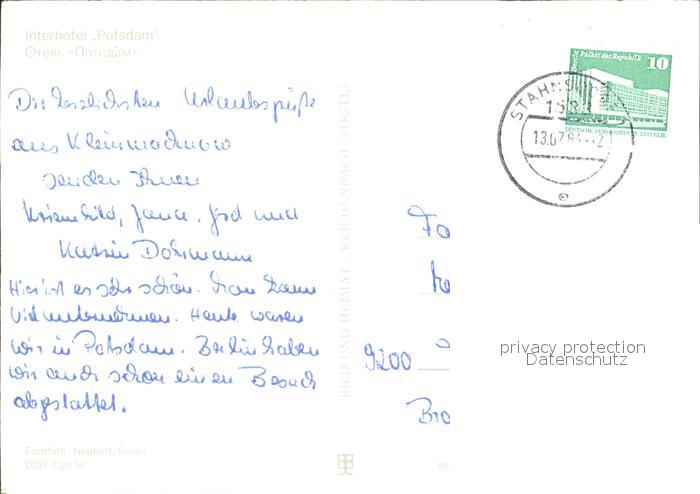 Interhotel „Potsdam“
Отель «Потсдам»
Die herzlichsten Urlaubsgrüße
aus Kleinmachnow
senden Ihnen
Kriemhild, Jana, Jörd und
Katrin Dohrmann
Hier ist es sehr schön. Man kann
viel unternehmen. Heute waren
wir in Potsdam. Berlin haben
wir auch schon einen Besuch
abgestattet.
Farbfoto: Neubert, Berlin
DDR 0,20 M
BILD UND HEIMAT · REICHENBACH (VOGTL)
Berlin Palast der Republik 10
DEUTSCHE DEMOKRATISCHE REPUBLIK
STAHNSDORF
153
13.07.84
e
9200
privacy protection
Datenschutz